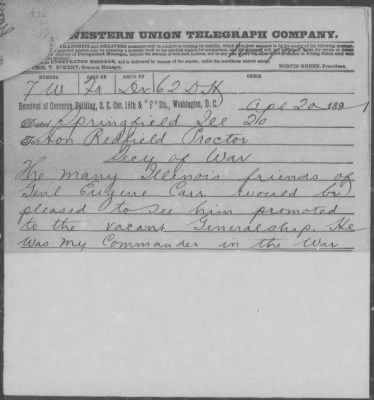 WESTERN UNION TELEGRAPH COMPANY.
THOS. T. ECKERT, General Manager. NORVIN GREEN, President.
NUMBER SENT BY REC'D BY CHECK
7 W Fr Dr 62 D H
Received at Corcoran Building, S. E. Cor. 15th & F Sts., Washington, D. C. Apl 20 1891
Dated Springfield Ill 20
To Hon Redfield Proctor
Secy of War
The many Illinois friends of
Genl Eugene Carr would be
pleased to see him promoted
to the vacant Generalship. He
was my Commander in the War